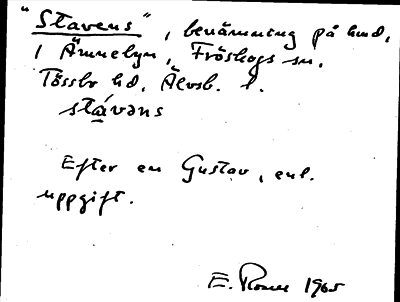 "Stavens", benämning på hmd.
i Ämnebyn, Fröskogs sn.
Tössbo hd, Älvsb. l.
stávəns
Efter en Gustav, enl.
uppgift.
E. 1965